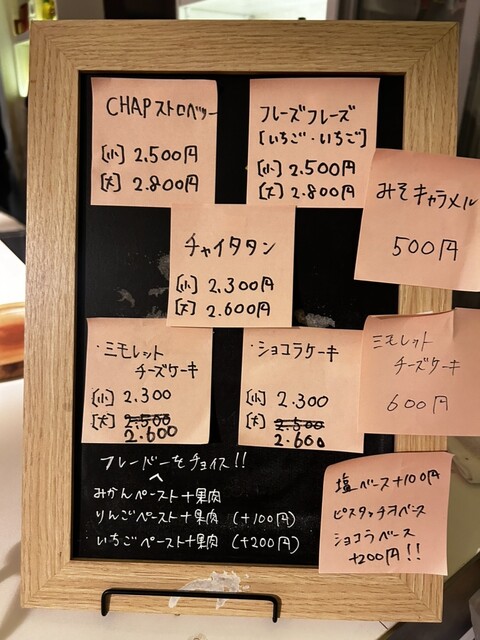 CHAPストロベリー
[小] 2.500円
[大] 2.800円
フレーズフレーズ
[いちご・いちご]
[小] 2.500円
[大] 2.800円
みそキャラメル
500円
チャイタタン
[小] 2.300円
[大] 2.600円
・ミモレット
チーズケーキ
[小] 2.300
[大] 2.500
2.600
・ショコラケーキ
[小] 2.300
[大] 2.500
2.600
ミモレット
チーズケーキ
600円
フレーバーをチョイス!!
・みかんペースト+果肉
・りんごペースト+果肉 (+100円)
・いちごペースト+果肉 (+200円)
塩ベース+100円
ピスタッチオベース
ショコラベース
+200円!!